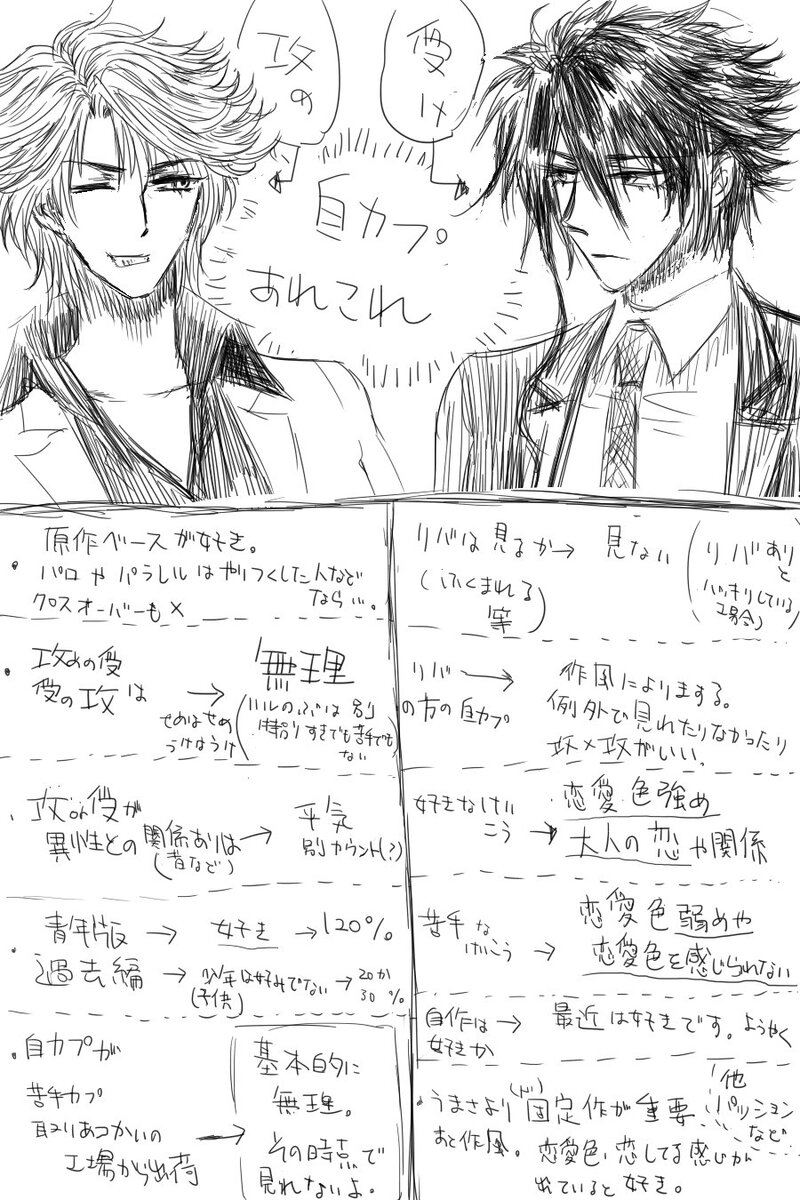 攻め
受け
自カプ
あれこれ
原作ベースが好き。
パロやパラレルはやりつくした人など
なら…。
クロスオーバーも×
攻めの受
受の攻は
→
無理
せめはせめ
うけはうけ
別
すきでも苦手でも
ない
攻or受が
異性との関係ありは
(昔など)
→
平気
別カウント(?)
青年版 → 好き → 120%
過去編 → 少年は好みでない → 20か
(子供)
30%
自カプが
苦手カプ
取りあつかいの
工場から出荷
→
基本的に
無理。
その時点で
見れないよ。
リバは見るか → 見ない
(ふくまれる
等)
(リバあり
と
ハッキリしている
場合)
リバ
の方の自カプ
→
作風によりまする。
例外で見れたりなかったり
攻×攻がいい。
好きなけい
こう
→
恋愛色強め
大人の恋や関係
苦手な
けいこう
→
恋愛色弱めや
恋愛色を感じられない
自作は
好きか
→
最近は好きです。ようやく
うまさより固定作が重要
あと作風。
他
パッション
など
恋愛色、恋してる感じが
出ていると好き。